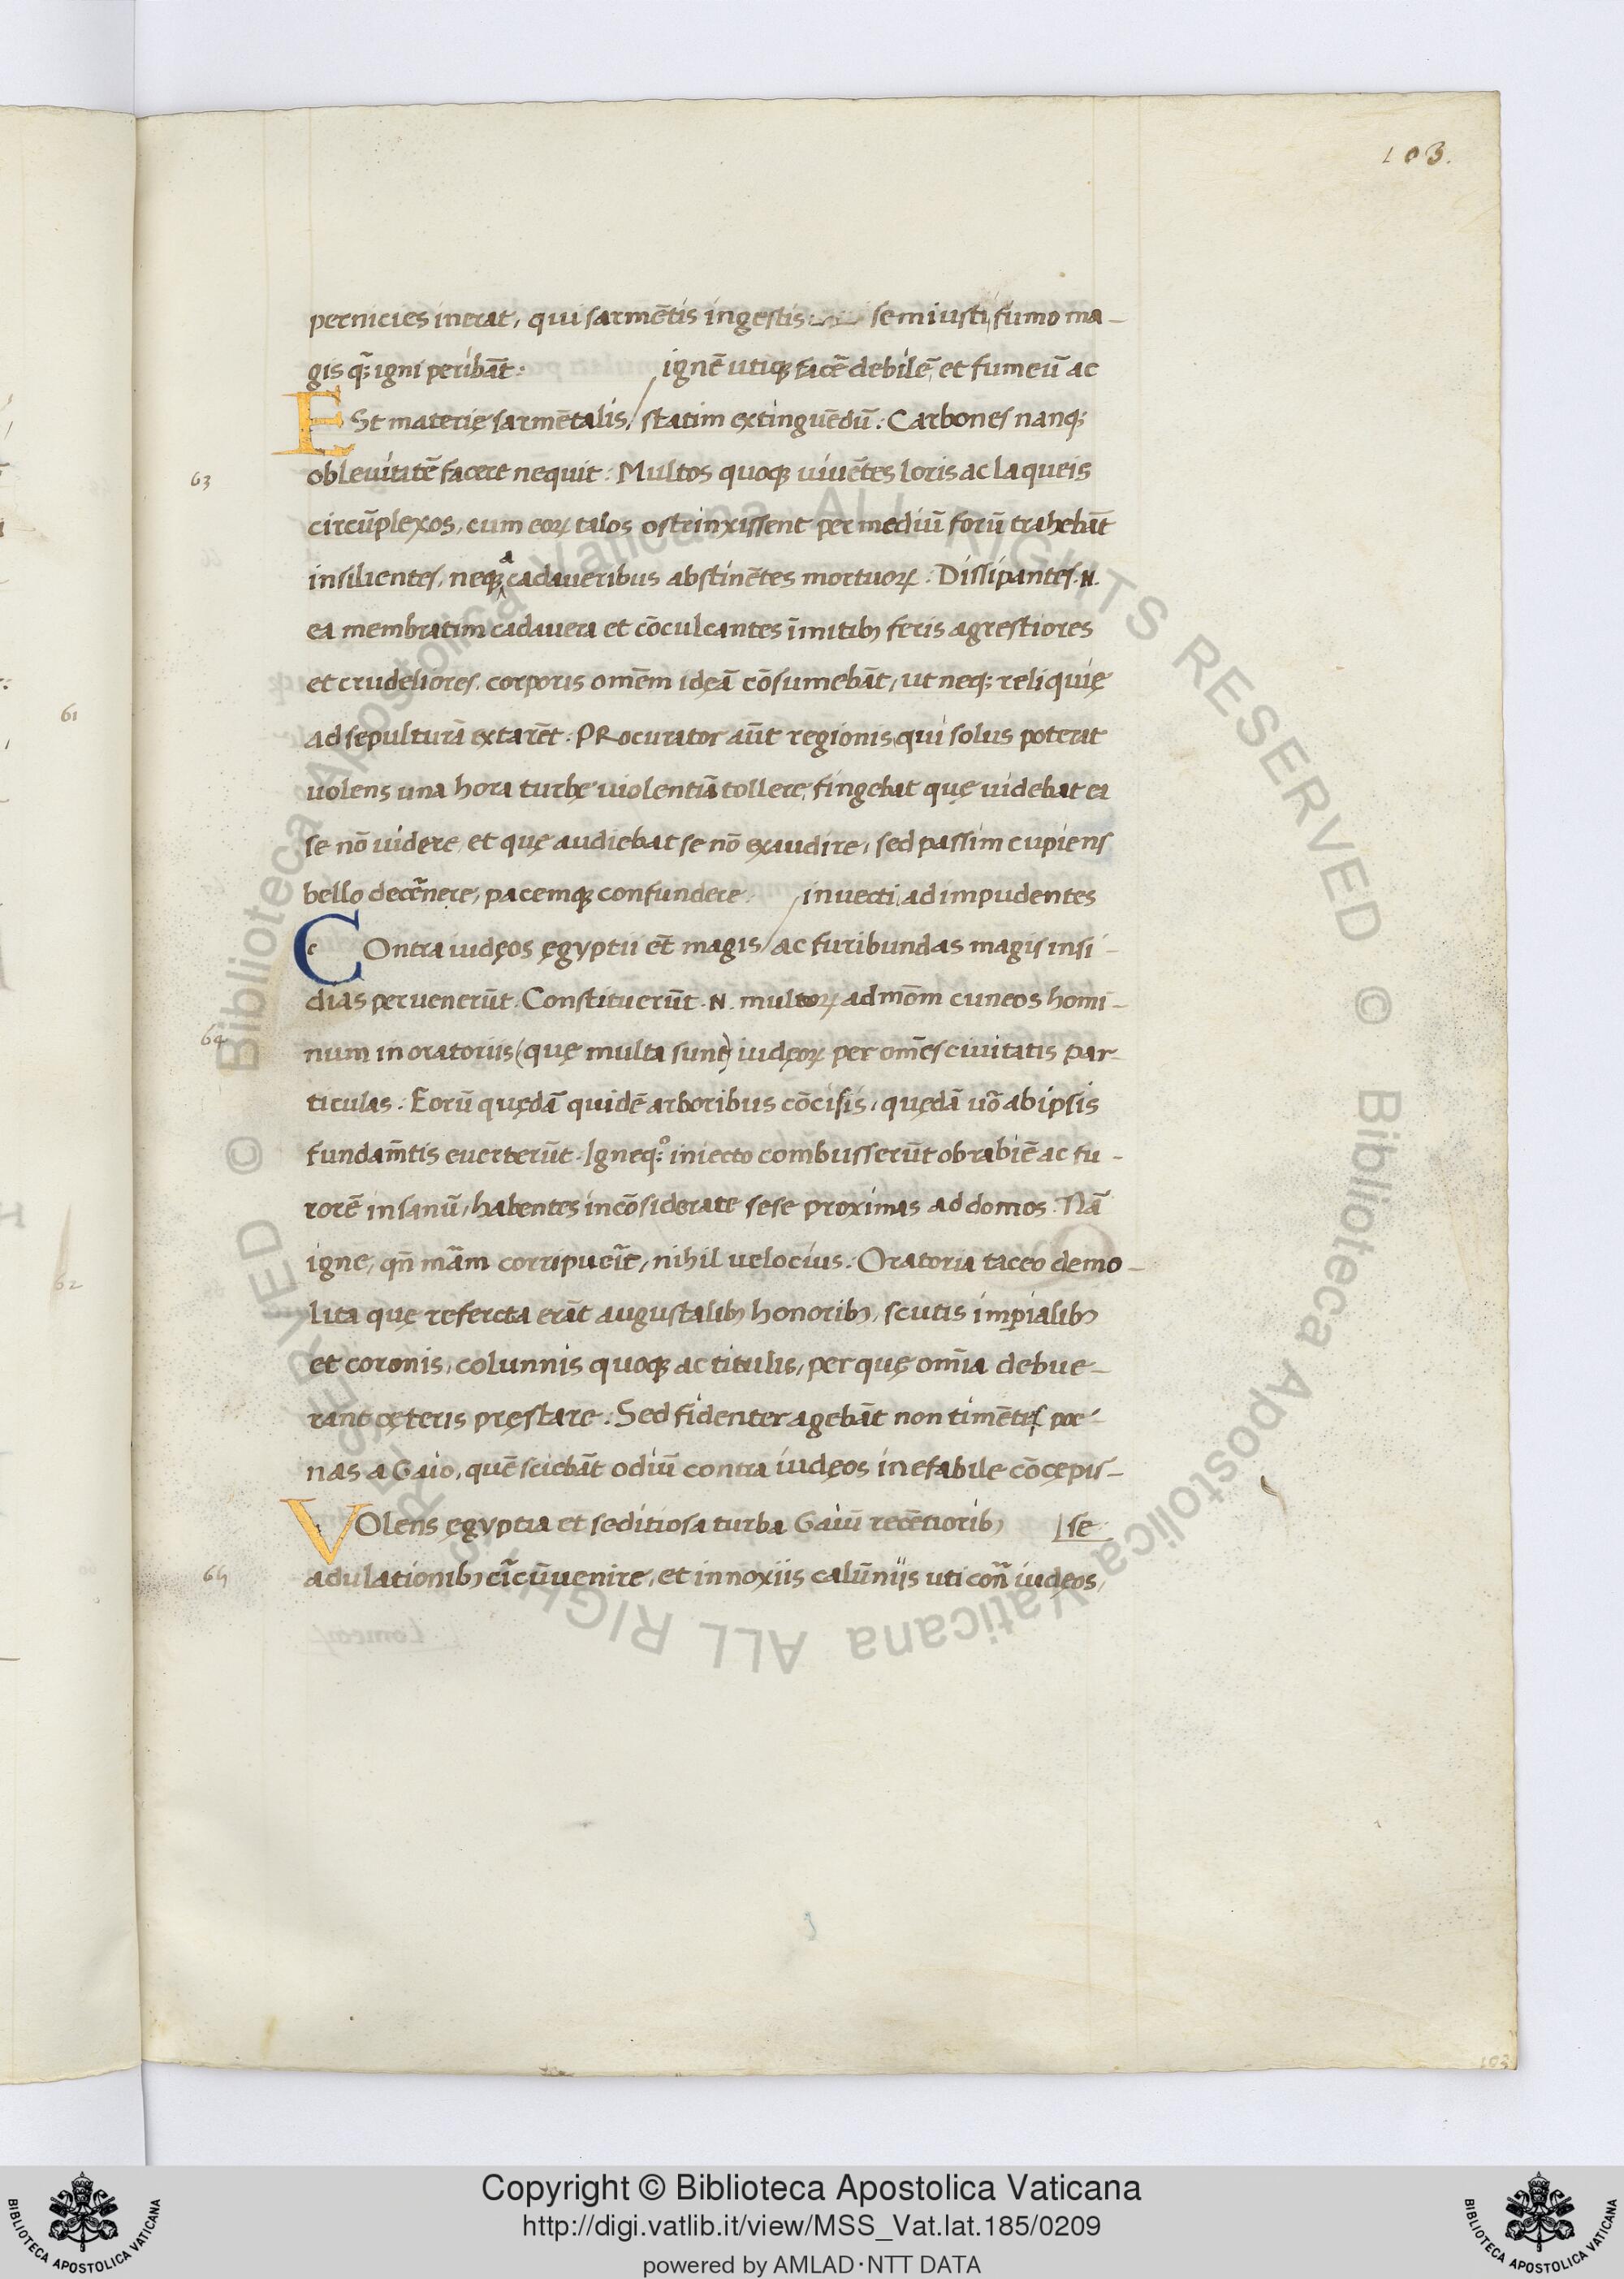 103.
pernicies inerat, qui sarmētis ingestis semiusti, fumo ma-
gis q̄; igni peribāt: ignē utiqꝫ facē debilē, et fumeū ac
ESt materię sarmētalis, / statim extinguēdū: Carbones nanqꝫ
63 ob levitatē facere nequit: Multos quoqꝫ viuētes loris ac laqueis
circūplexos, cum eoꝝ talos ostrinxissent per mediū forū trahebāt
insilientes, neqꝫ a cadaveribus abstinētes mortuoꝝ: Dissipantes .N.
ea membratim cadavera et cōculcantes īmitibꝫ feris agrestiores
et crudeliores, corporis omēm idęā cōsumebāt, ut neqꝫ reliquię
ad sepulturā extarēt. PRocurator aūt regionis, qui solus poterat
uolens una hora turbę uiolentiā tollere, fingebat quę uidebat ea
se nō uidere, et quę audiebat se nō exaudire, sed passim cupiens
bello decērnere, pacemqꝫ confundere. / invecti, ad impudentes
COntra iudęos ęgyptii et̄ magis / ac furibundas magis insi-
dias peruenerūt. Constituerūt .N. multoꝝ ad mōm cuneos homi-
64 num in oratoriis (quę multa sunt) iudęoꝝ per omēs civitatis par-
ticulas. Eorū quędā quidē arboribus cōcisis, quędā uō ab ipsis
fundam̄tis euerterūt. Igneqꝫ iniecto combusserūt ob rabiē ac fu-
rorē insanū, habentes incōsiderate sese proximas ad domos. Nā
igne, qn̄ mām corripuerīt, nihil velocius. Oratoria taceo demo-
lita quę referta erāt augustalibꝫ honoribꝫ, scutis imperialibꝫ
et coronis, colunnis quoqꝫ ac titulis, per quę omīa debue-
rant cęteris pręstare. Sed fidenter agebāt non timētes poe-
nas a Gaio, quē sciebāt odiū contra iudęos inefabile cōcępis-
VOlens ęgyptia et seditiosa turba Gaiū recētioribꝫ [se
65 adulationibꝫ circūvenire, et innoxiis calūniis uti conr̄a iudęos,
61
62
103
Copyright © Biblioteca Apostolica Vaticana
http://digi.vatlib.it/view/MSS_Vat.lat.185/0209
powered by AMLAD·NTT DATA
BIBLIOTECA APOSTOLICA VATICANA
BIBLIOTECA APOSTOLICA VATICANA
© Biblioteca Apostolica Vaticana ALL RIGHTS RESERVED © Biblioteca Apostolica Vaticana ALL RIGHTS RESERVED